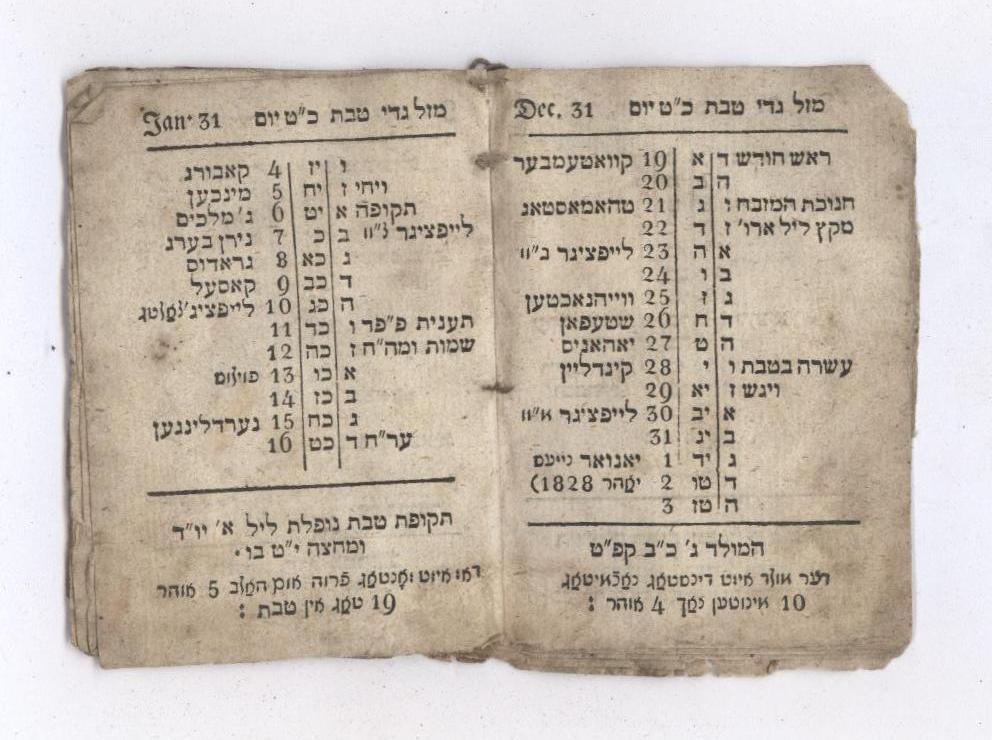 מזל גדי טבת כ״ט יום Dec. 31
ראש חודש ד א 19 קוואטעמבער
ה ב 20
חנוכת המזבח ו ג 21 טהאמאסטאג
מקץ ליל ארו׳ ז ד 22
א ה 23 לייפציגר
ב ו 24
ג ז 25 ווייהנאכטען
ד ח 26 שטעפאן
ה ט 27 יאהאניס
עשרה בטבת ו י 28 קינדליין
ויגש ז יא 29
א יב 30 לייפציגר
ב יג 31
ג יד 1 יאנואר נייעס
ד טו 2 יאהר 1828)
ה טז 3
המולד ג׳ כ״ב קפ״ט
דער מולד איזט דינסטאג נאכמיטאג
10 מינוטען נאך 4 אוהר :
מזל גדי טבת כ״ט יום Jan. 31
ו יז 4 קאבורג
ויחי ז יח 5 מינכען
תקופה א יט 6 ג׳מלכים
לייפציגר ב כ 7 נירן בערג
ג כא 8 גראדוס
ד כב 9 קאסעל
ה כג 10
תענית פ״פד ו כד 11
שמות ומה״ח ז כה 12
א כו 13
ב כז 14
ג כח 15 נערדלינגען
ער״ח ד כט 16
תקופת טבת נופלת ליל א׳ יו״ד
ומחצה י״ט בו.
איזט זאנטאג פרוה אום האלב 5 אוהר
19 טאג אין טבת :